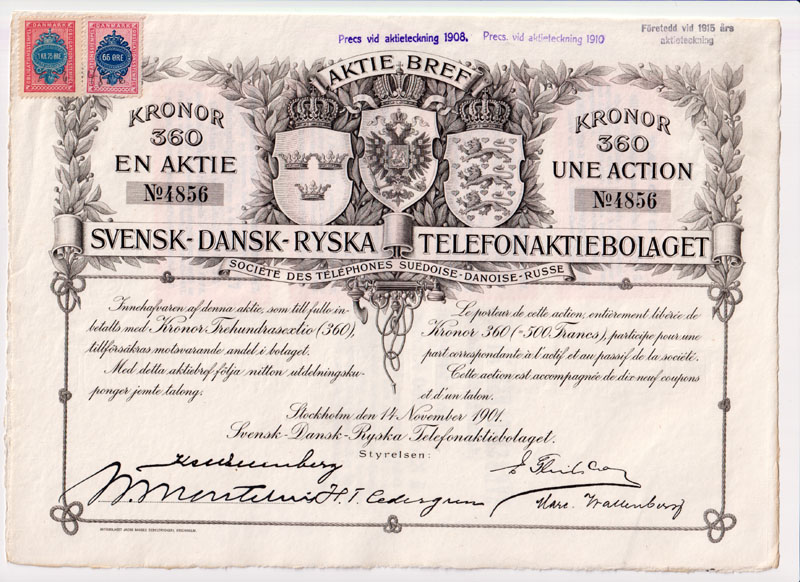 DANMARK
DANMARK
1 KR. 75 ØRE
66 ØRE
Precs vid aktieteckning 1908.
Precs. vid aktieteckning 1910
Företedd vid 1915 års
aktieteckning
AKTIE BREF
KRONOR
360
EN AKTIE
No 4856
KRONOR
360
UNE ACTION
No 4856
SVENSK-DANSK-RYSKA TELEFONAKTIEBOLAGET
SOCIÉTÉ DES TÉLÉPHONES SUEDOISE-DANOISE-RUSSE
Innehafvaren af denna aktie, som till fullo in-
betalts med Kronor Trehundrasextio (360),
tillförsäkras motsvarande andel i bolaget.
Med detta aktiebref följa nitton utdelningsku-
ponger jemte talong.
Le porteur de cette action, entièrement libérée de
Kronor 360 (=500 Francs), participe pour une
part correspondante à l'actif et au passif de la société.
Cette action est accompagnée de dix neuf coupons
et d'un talon.
Stockholm den 14 November 1901.
Svensk-Dansk-Ryska Telefonaktiebolaget.
Styrelsen:
H. T. Cedergren
Marc. Wallenberg